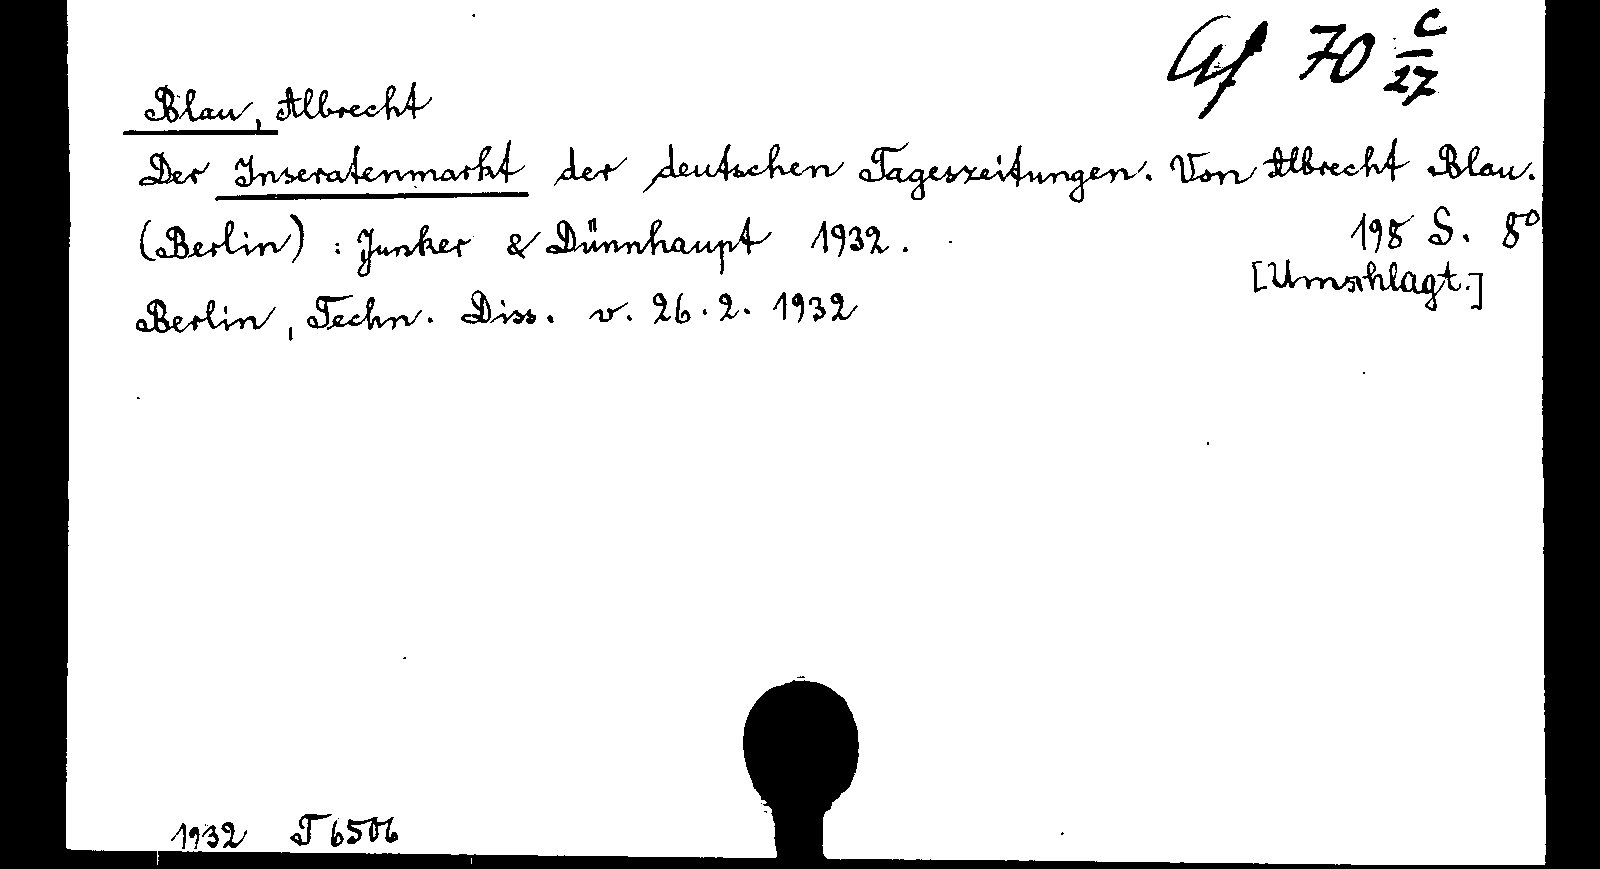 Af 70 c/27
Blau, Albrecht
Der Inseratenmarkt der deutschen Tageszeitungen. Von Albrecht Blau.
(Berlin) : Junker & Dünnhaupt 1932. 198 S. 8°
[Umschlagt.]
Berlin, Techn. Diss. v. 26.2.1932
1932 T 6506